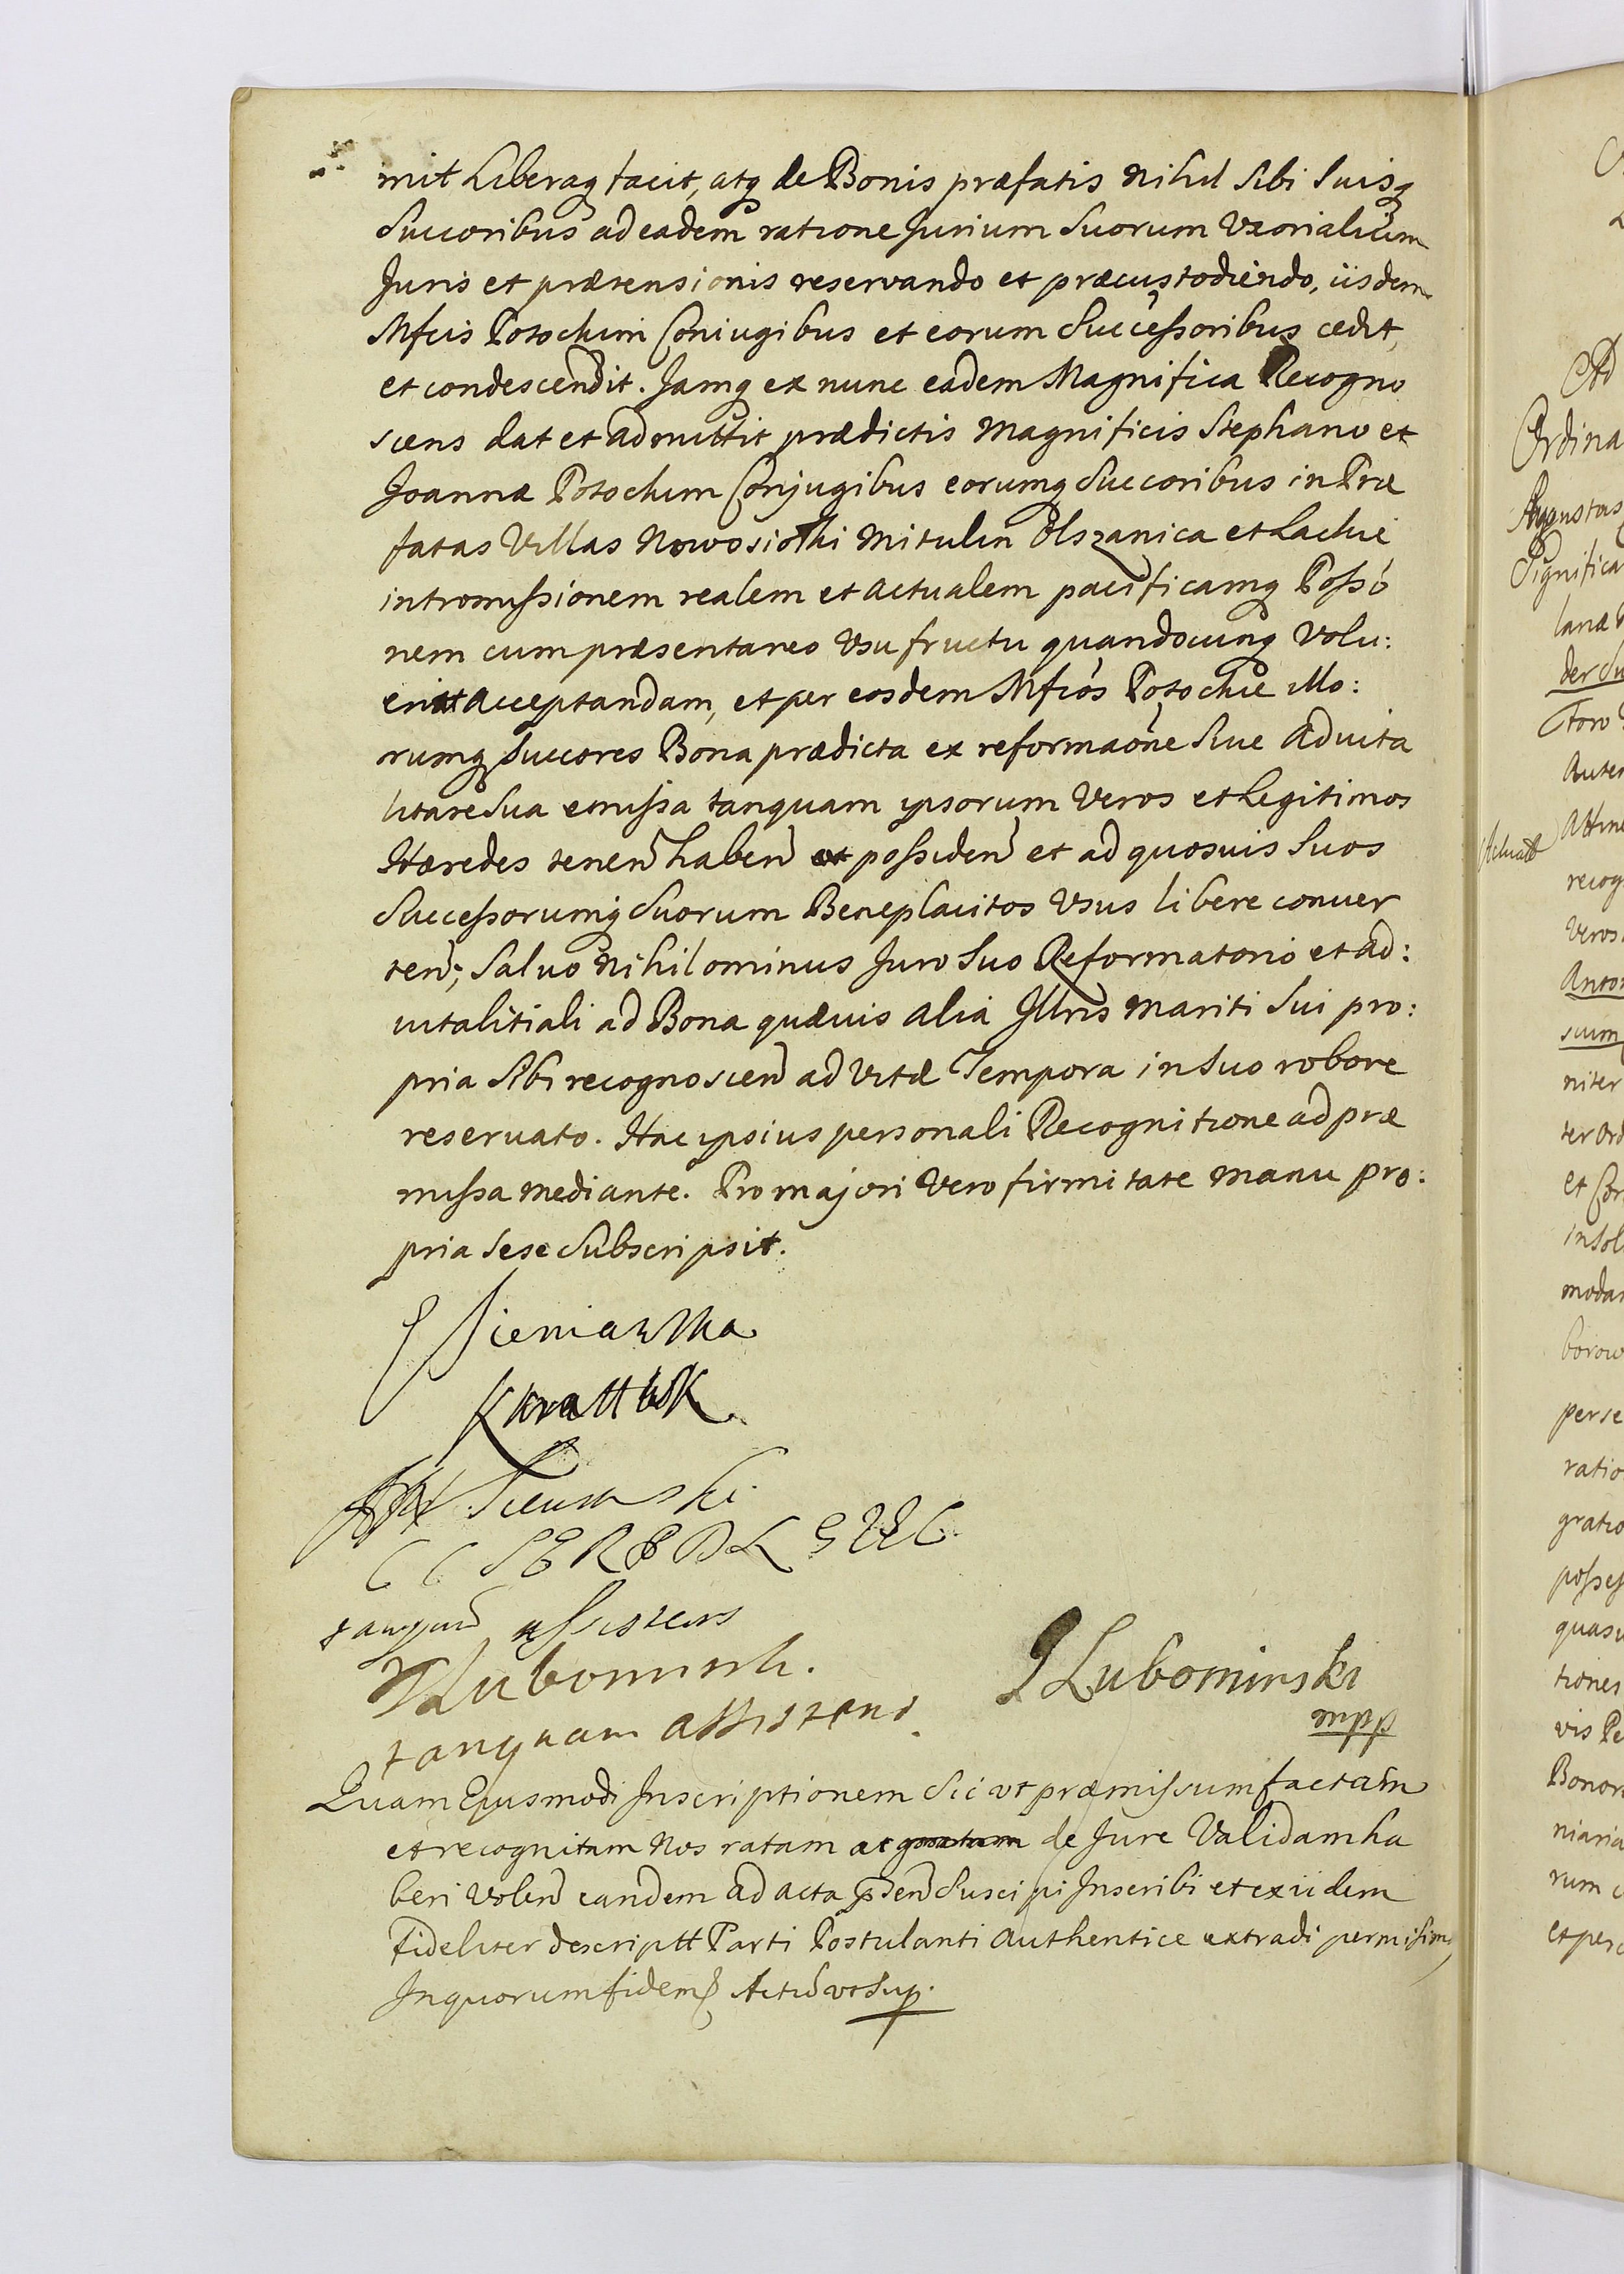 mit Liberaq facit, atq de Bonis præfatis nihil Sibi Suisq
Succoribus ad eadem ratione Jurium Suorum Uxorialium
Juris et prætensionis reservando et præcustodiendo, iisdem
Mfcis Potockim Coniugibus et eorum Successoribus cedit,
et condescendit. Jamq ex nunc eadem Magnifica Recogno
scens dat et admittit prædictis Magnificis Stephano et
Joannæ Potockim Conjugibus eorumq Succoribus in Præ
fatas Villas Nowosiołki Mitulin Olszanica et Lackie
intromissionem realem et actualem pacificamq Posso
nem cum præsentaneo Usufructu quandocunq Volu:
erint acceptandam, et per eosdem Mfcos Potockie illo:
rumq Succores Bona prædicta ex reformaone Sive Advita
litate Sua emissa tanquam ipsorum Veros et Legitimos
Hæredes tenen haben et possiden et ad quosvis Suos
Successorumq Suorum Beneplacitos Usus libere conver
ten; Salvo Nihilominus Jure Suo Reformatorio et ad:
vitalitiali ad Bona quævis alia Illris Mariti Sui pro:
pria Sibi recognoscen ad Vitæ Tempora in Suo robore
reservato. Hac ipsius personali Recognitione ad præ
missa mediante. Pro majori Vero firmitate manu pro:
pria Sese Subscripsit.
E Sieniawska
Sieniawski
tanquam assistens
Lubomirski
J Lubomirski
mpp
tanquam assistens
Quam Ejusmodi Inscriptionem Sic ut præmissum factam
et recognitam Nos ratam ac gratam de Jure Validam ha
beri Volen eandem ad acta psen Suscipi Inscribi et ex iisdem
fideliter descriptt Parti Postulanti authentice extradi permisim
In quorum fidem Actū ut Sup.